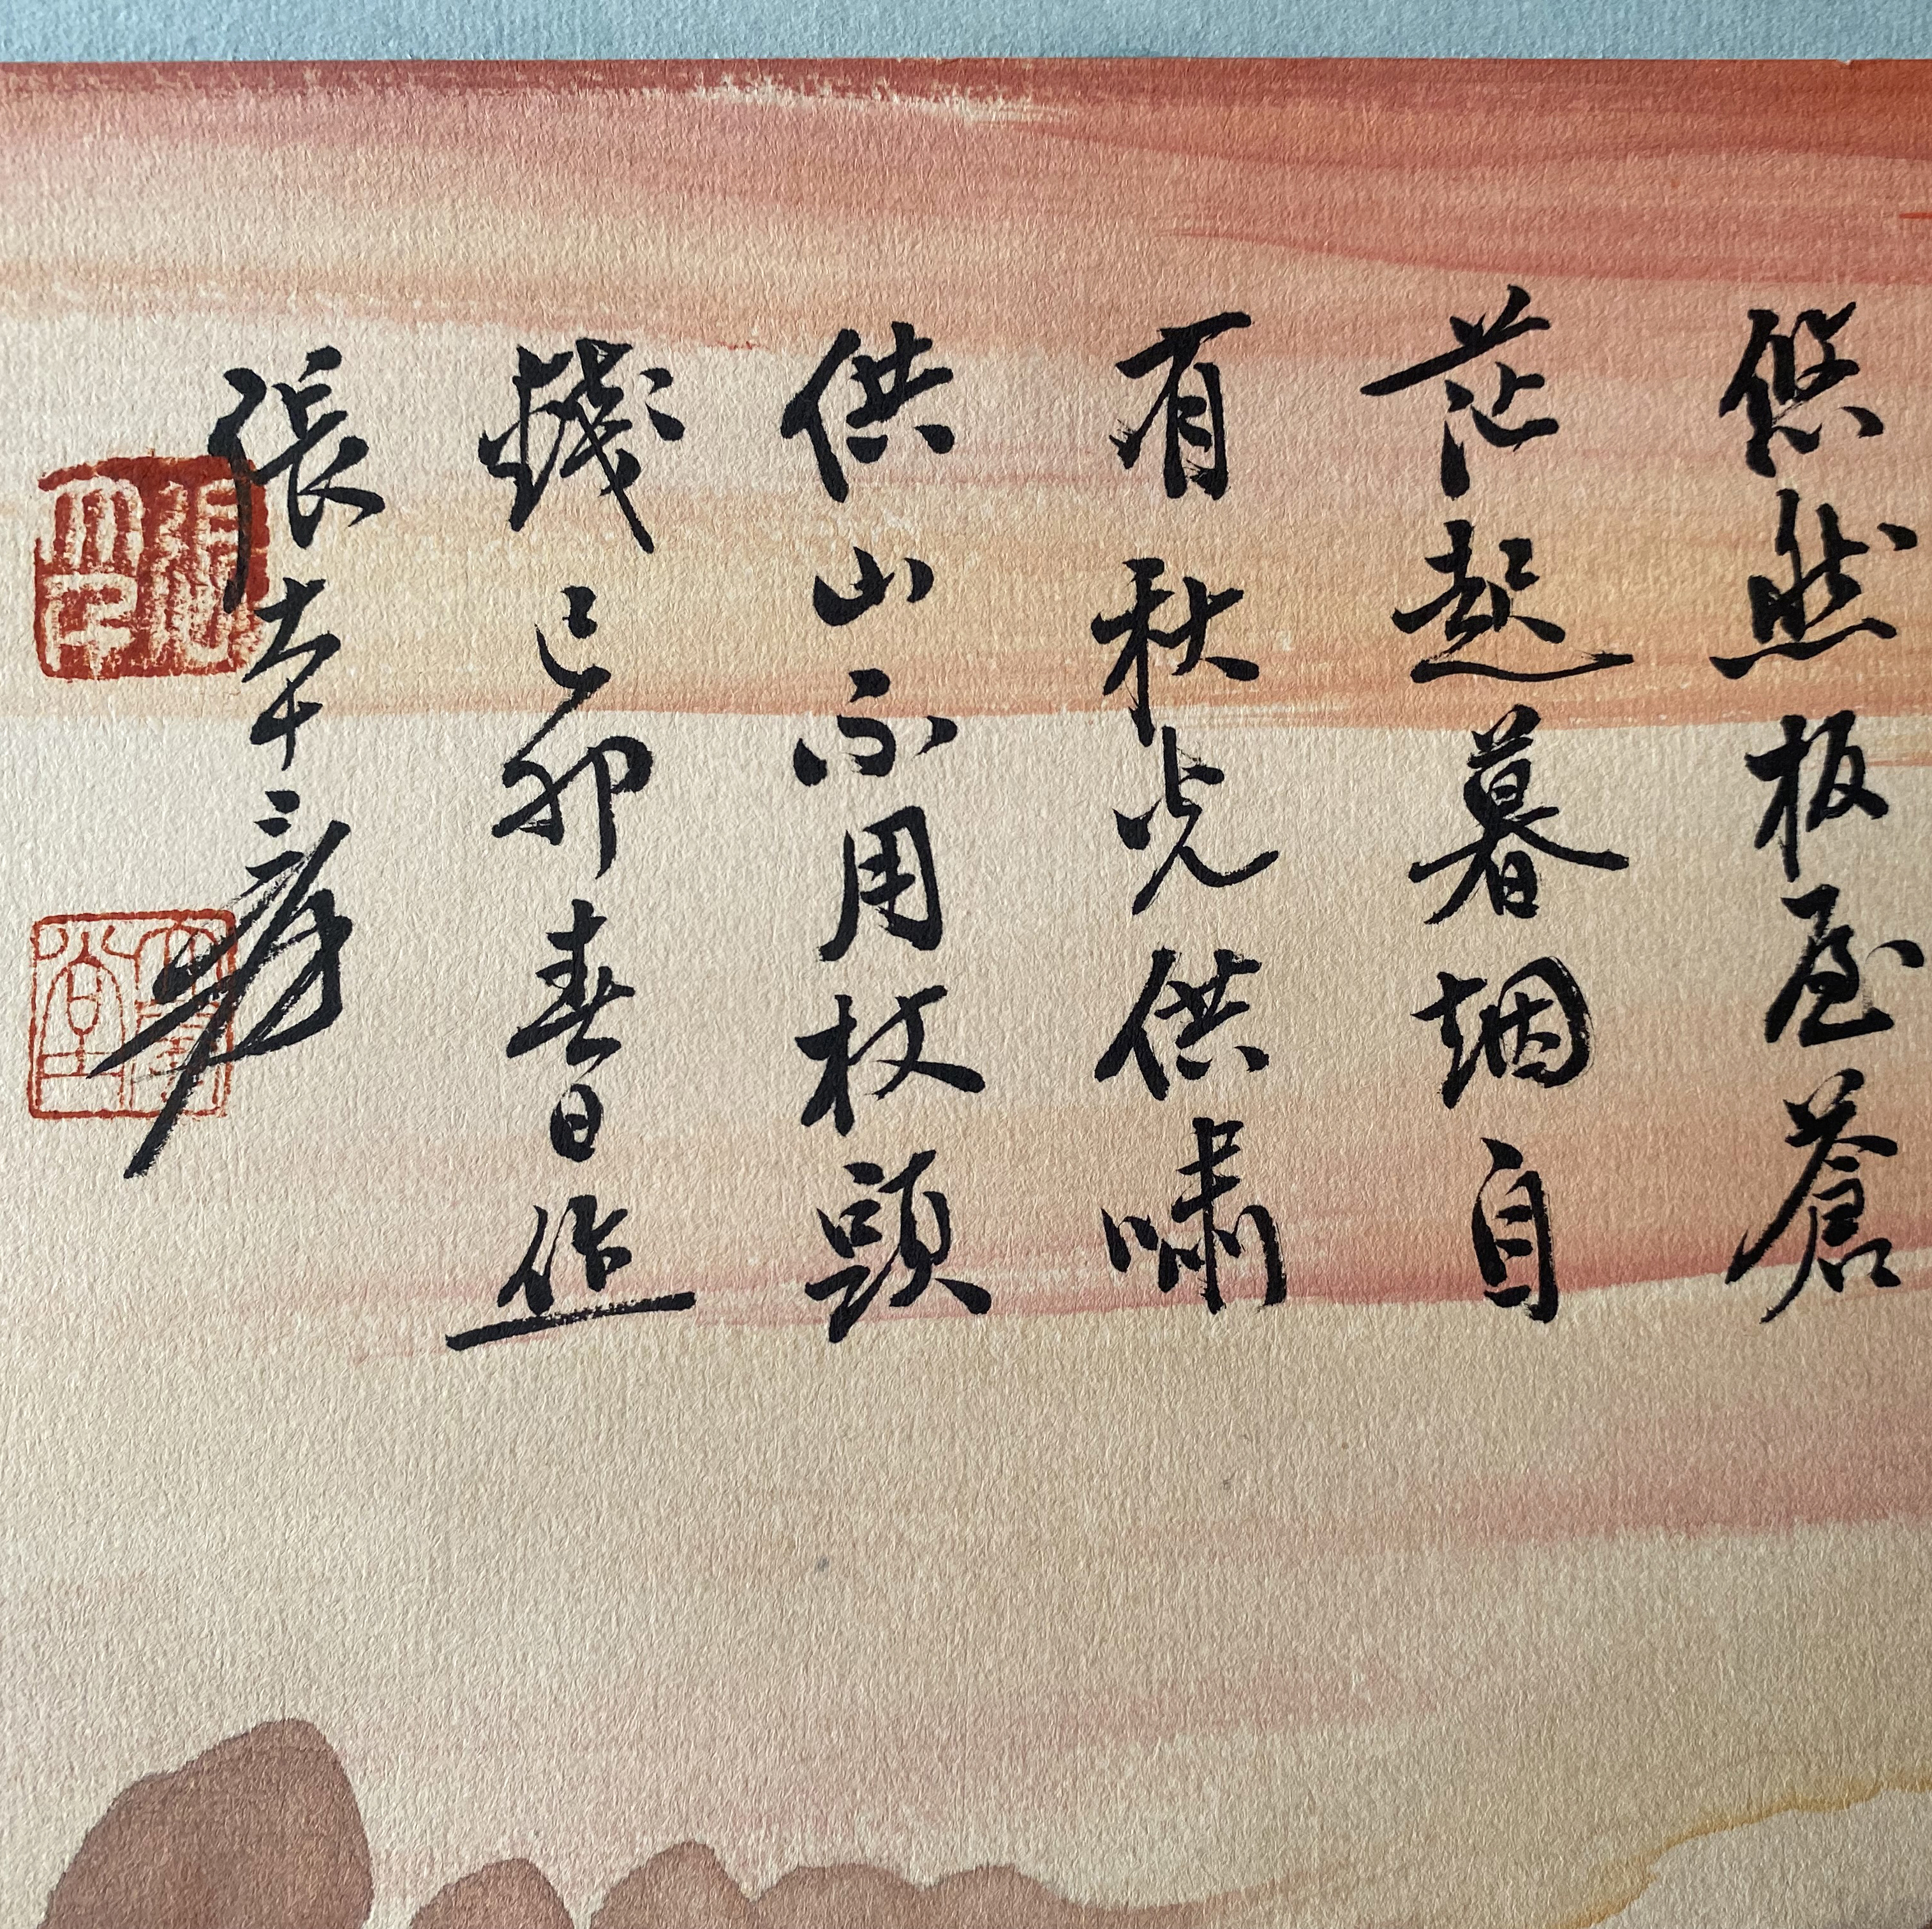 悠然板屋蒼
茫起暮烟自
有秋光供嘯
供山不用杖頭
錢己卯春日作
張大千爰